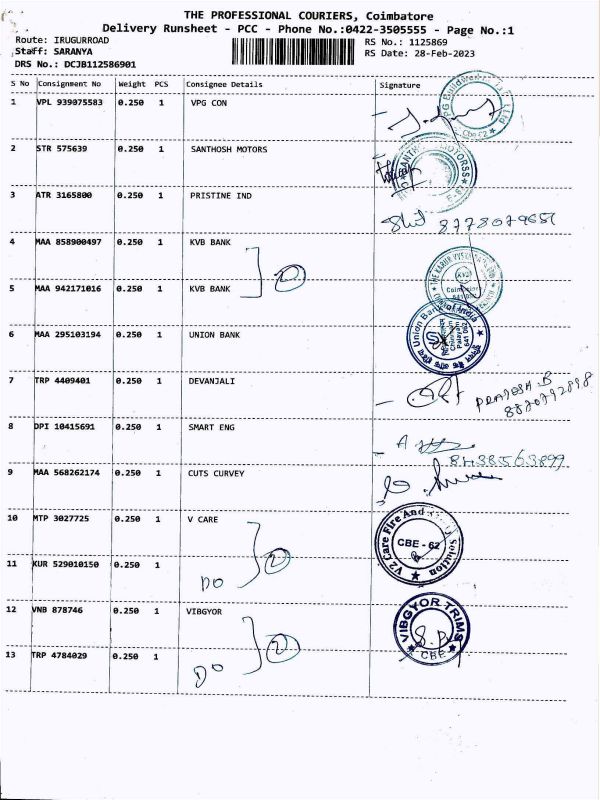 THE PROFESSIONAL COURIERS, Coimbatore
Delivery Runsheet - PCC - Phone No.:0422-3505555 - Page No.:1
Route: IRUGURROAD
Staff: SARANYA
DRS No.: DCJB112586901
RS No.: 1125869
RS Date: 28-Feb-2023
S No Consignment No Weight PCS Consignee Details Signature
1 VPL 939075583 0.250 1 VPG CON
2 STR 575639 0.250 1 SANTHOSH MOTORS
3 ATR 3165800 0.250 1 PRISTINE IND
4 MAA 858900497 0.250 1 KVB BANK
2
5 MAA 942171016 0.250 1 KVB BANK
Union Bank of India
6 MAA 295103194 0.250 1 UNION BANK
7 TRP 4409401 0.250 1 DEVANJALI
PRAJESH B
8870792898
8 DPI 10415691 0.250 1 SMART ENG
8438563899
9 MAA 568262174 0.250 1 CUTS CURVEY
10 MTP 3027725 0.250 1 V CARE
V2 Care Fire And Solution
CBE - 62
11 KUR 529010150 0.250 1
DO
2
12 VNB 878746 0.250 1 VIBGYOR
VIBGYOR TRIMS
CBE
13 TRP 4784029 0.250 1
DO
2